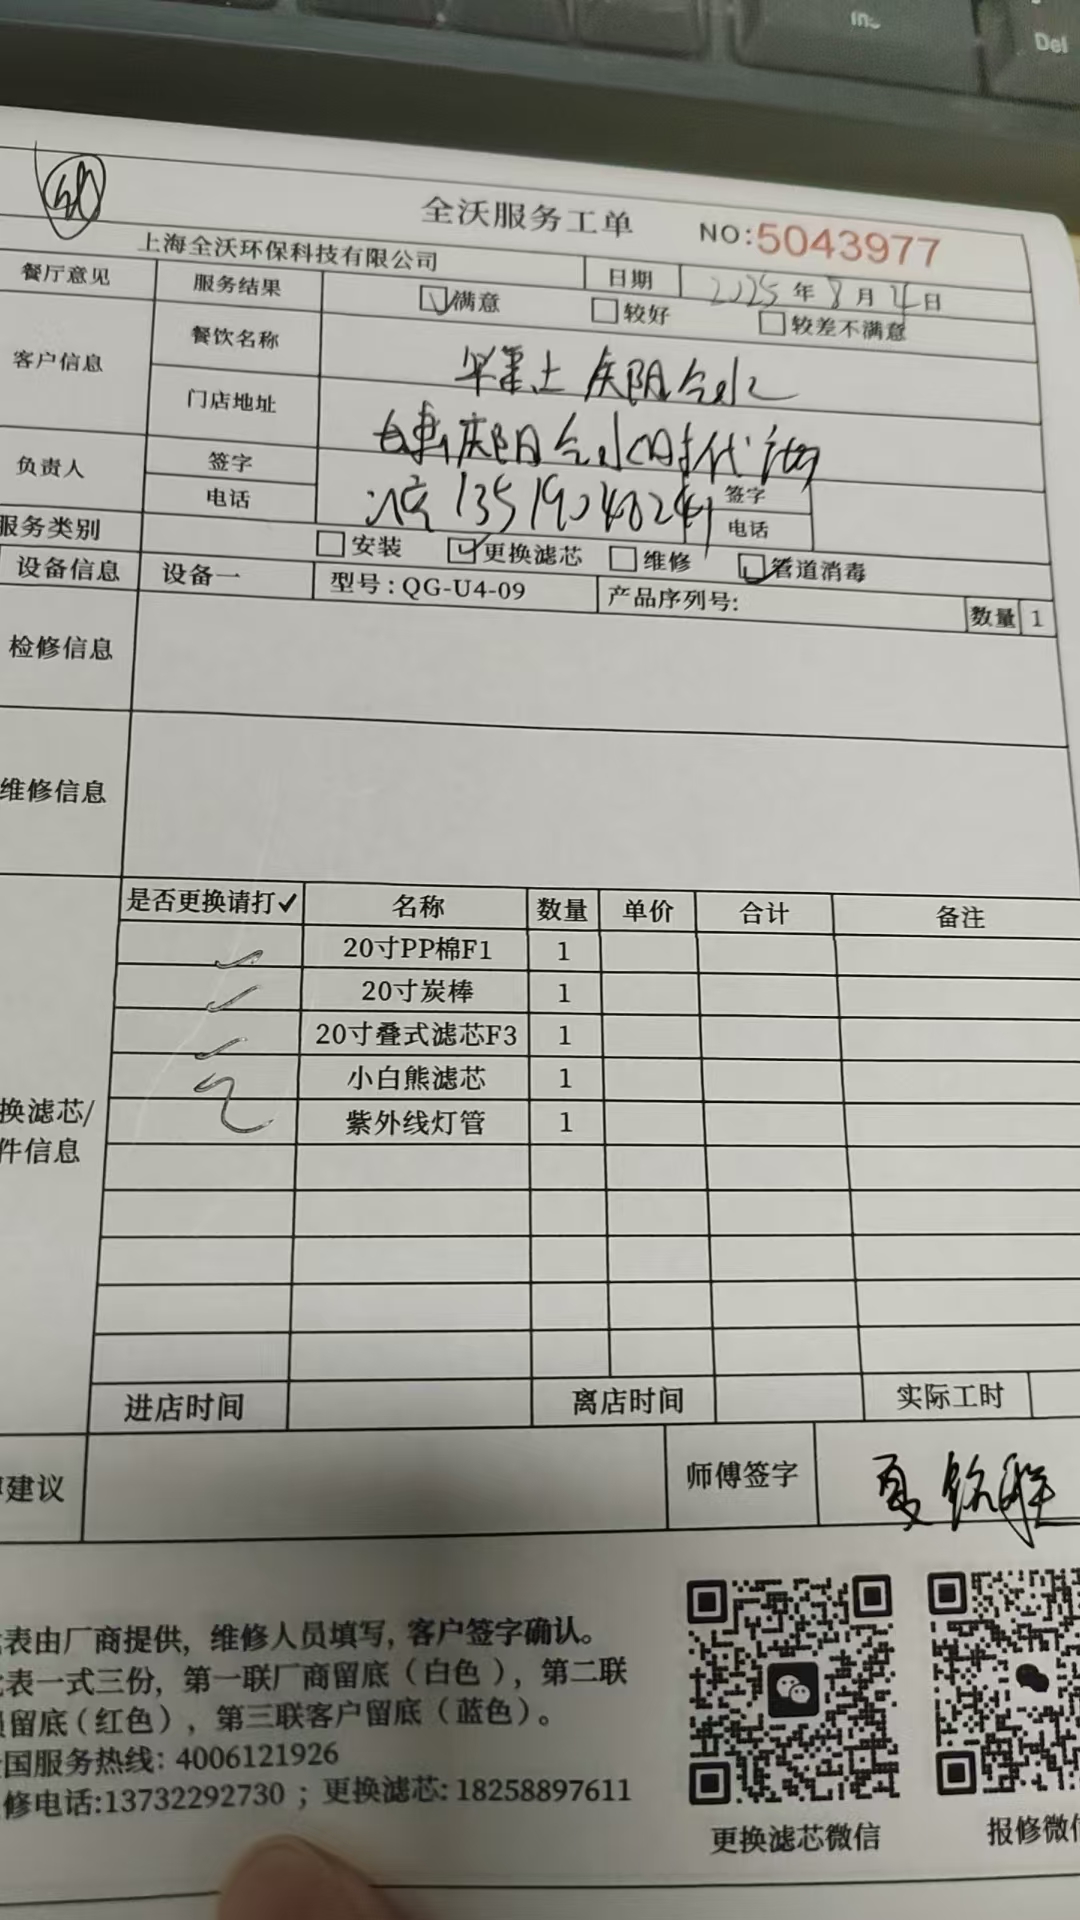 In
Del
全沃服务工单
NO:5043977
上海全沃环保科技有限公司
日期
2025年8月4日
餐厅意见
服务结果
满意
较好
较差不满意
客户信息
餐饮名称
庆阳合水
门店地址
甘肃庆阳合水时代
负责人
签字
签字
电话
电话
服务类别
安装
更换滤芯
维修
管道消毒
设备信息
设备一
型号:QG-U4-09
产品序列号:
数量
1
检修信息
维修信息
是否更换请打✓ 名称 数量 单价 合计 备注
✓ 20寸PP棉F1 1
✓ 20寸炭棒 1
✓ 20寸叠式滤芯F3 1
小白熊滤芯 1
紫外线灯管 1
换滤芯/
件信息
进店时间
离店时间
实际工时
建议
师傅签字
夏
表由厂商提供,维修人员填写,客户签字确认。
表一式三份,第一联厂商留底(白色),第二联
留底(红色),第三联客户留底(蓝色)。
国服务热线:4006121926
修电话:13732292730;更换滤芯:18258897611
更换滤芯微信
报修微信